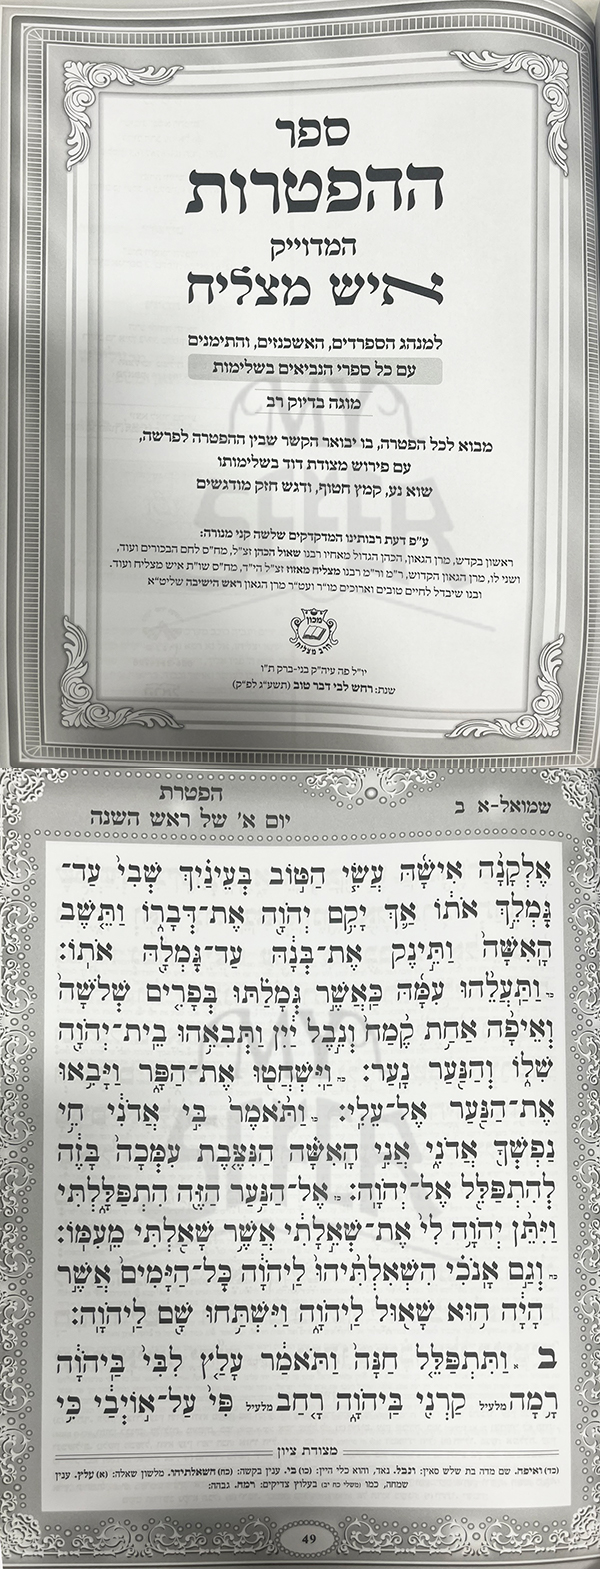 ספר
ההפטרות
המדוייק
איש מצליח
למנהג הספרדים, האשכנזים, והתימנים
עם כל ספרי הנביאים בשלימות
מוגה בדיוק רב
מבוא לכל הפטרה, בו יבואר הקשר שבין ההפטרה לפרשה,
עם פירוש מצודת דוד בשלימותו
שוא נע, קמץ חטוף, ודגש חזק מודגשים
ע"פ דעת רבותינו המדקדקים שלשה קני מנורה:
ראשון בקדש, מרן הגאון, הכהן הגדול מאחיו רבנו שאול הכהן זצ"ל, מח"ס לחם הבכורים ועוד,
ושני לו, מרן הגאון הקדוש, ר"מ ור"מ רבנו מצליח מאזוז זצ"ל הי"ד, מח"ס שו"ת איש מצליח ועוד.
ובנו שיבדל לחיים טובים וארוכים מו"ר ועט"ר מרן הגאון ראש הישיבה שליט"א
מכון
הרב מצליח
יו"ל פה עיה"ק בני-ברק ת"ו
שנת: רחש לבי דבר טוב (תשע"ג לפ"ק)
MY
SEFER
שמואל-א ב
הפטרת
יום א' של ראש השנה
אֶלְקָנָ֨ה אִישָׁ֜הּ עֲשִׂ֧י הַטּ֣וֹב בְּעֵינַ֗יִךְ שְׁבִי֙ עַד־
גׇּמְלֵ֣ךְ אֹת֔וֹ אַ֛ךְ יָקֵ֥ם יְהֹוָ֖ה אֶת־דְּבָר֑וֹ וַתֵּ֤שֶׁב
הָֽאִשָּׁה֙ וַתֵּ֣ינֶק אֶת־בְּנָ֔הּ עַד־גׇּמְלָ֖הּ אֹתֽוֹ׃
כד וַתַּעֲלֵ֨הוּ עִמָּ֜הּ כַּאֲשֶׁ֣ר גְּמָלַ֗תּוּ בְּפָרִ֤ים שְׁלֹשָׁה֙
וְאֵיפָ֨ה אַחַ֥ת קֶ֙מַח֙ וְנֵ֣בֶל יַ֔יִן וַתְּבִאֵ֥הוּ בֵית־יְהֹוָ֖ה
שִׁל֑וֹ וְהַנַּ֖עַר נָֽעַר׃ כה וַֽיִּשְׁחֲט֖וּ אֶת־הַפָּ֑ר וַיָּבִ֥אוּ
אֶת־הַנַּ֖עַר אֶל־עֵלִֽי׃ כו וַתֹּ֙אמֶר֙ בִּ֣י אֲדֹנִ֔י חֵ֥י
נַפְשְׁךָ֖ אֲדֹנִ֑י אֲנִ֣י הָאִשָּׁ֗ה הַנִּצֶּ֤בֶת עִמְּכָה֙ בָּזֶ֔ה
לְהִתְפַּלֵּ֖ל אֶל־יְהֹוָֽה׃ כז אֶל־הַנַּ֥עַר הַזֶּ֖ה הִתְפַּלָּ֑לְתִּי
וַיִּתֵּ֨ן יְהֹוָ֥ה לִי֙ אֶת־שְׁאֵ֣לָתִ֔י אֲשֶׁ֥ר שָׁאַ֖לְתִּי מֵעִמּֽוֹ׃
כח וְגַ֣ם אָנֹכִ֗י הִשְׁאִלְתִּ֙יהוּ֙ לַֽיהֹוָ֔ה כׇּל־הַיָּמִים֙ אֲשֶׁ֣ר
הָיָ֔ה ה֥וּא שָׁא֖וּל לַֽיהֹוָ֑ה וַיִּשְׁתַּ֥חוּ שָׁ֖ם לַיהֹוָֽה׃
ב א וַתִּתְפַּלֵּ֤ל חַנָּה֙ וַתֹּאמַ֔ר עָלַ֤ץ לִבִּי֙ בַּֽיהֹוָ֔ה
רָ֥מָה מלעיל קַרְנִ֖י בַּֽיהֹוָ֑ה רָ֤חַב מלעיל פִּי֙ עַל־א֣וֹיְבַ֔י כִּ֥י
מצודת ציון
(כד) ואיפה. שם מדה בת שלש סאין: ונבל. נאד, והוא כלי היין: (כו) בי. ענין בקשה: (כח) השאלתיהו. מלשון שאלה: (א) עלץ. ענין
שמחה, כמו (משלי כח יב) בעלוץ צדיקים: רמה. גבהה:
49